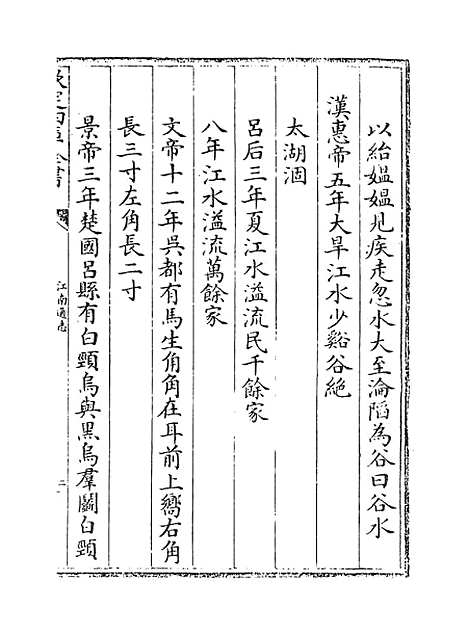 以紿媪媪見疾走忽水大至淪陷為谷曰谷水
漢惠帝五年大旱江水少谿谷絶
太湖涸
呂后三年夏江水溢流民千餘家
八年江水溢流萬餘家
文帝十二年吳都有馬生角角在耳前上嚮右角
長三寸左角長二寸
景帝三年楚國呂縣有白頸烏與黒烏羣鬭白頸
欽定四庫全書
江南通志
二